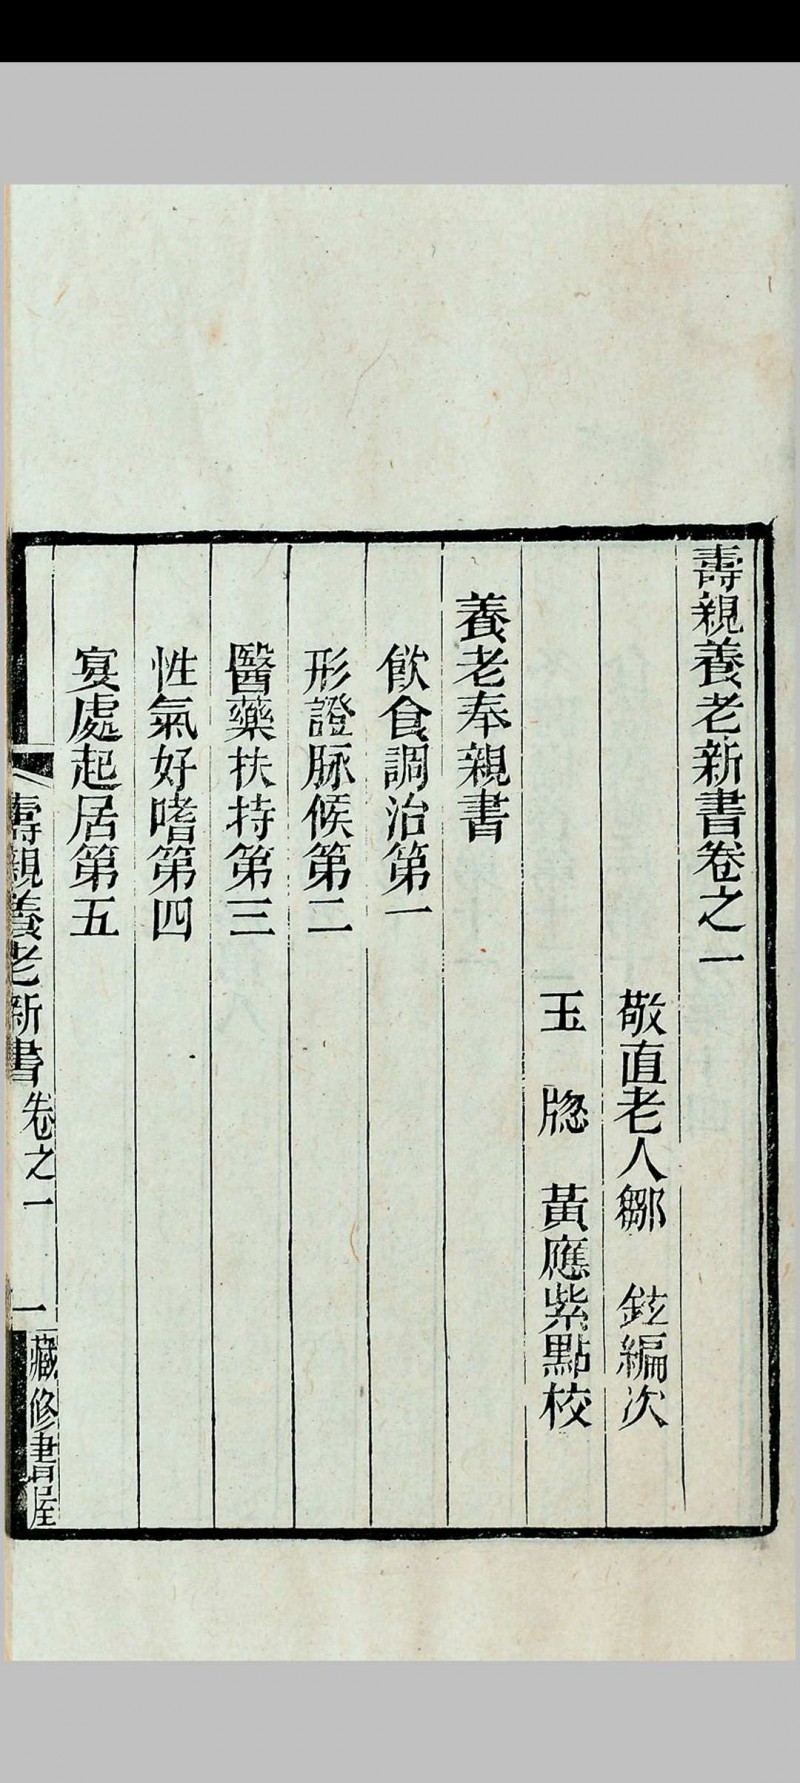 壽親養老新書卷之一
敬直老人鄒　鉉編次
玉　牕　黃應紫點校
養老奉親書
飲食調治第一
形證脉候第二
醫藥扶持第三
性氣好嗜第四
宴處起居第五
壽親養老新書　卷之一　一　藏修書屋